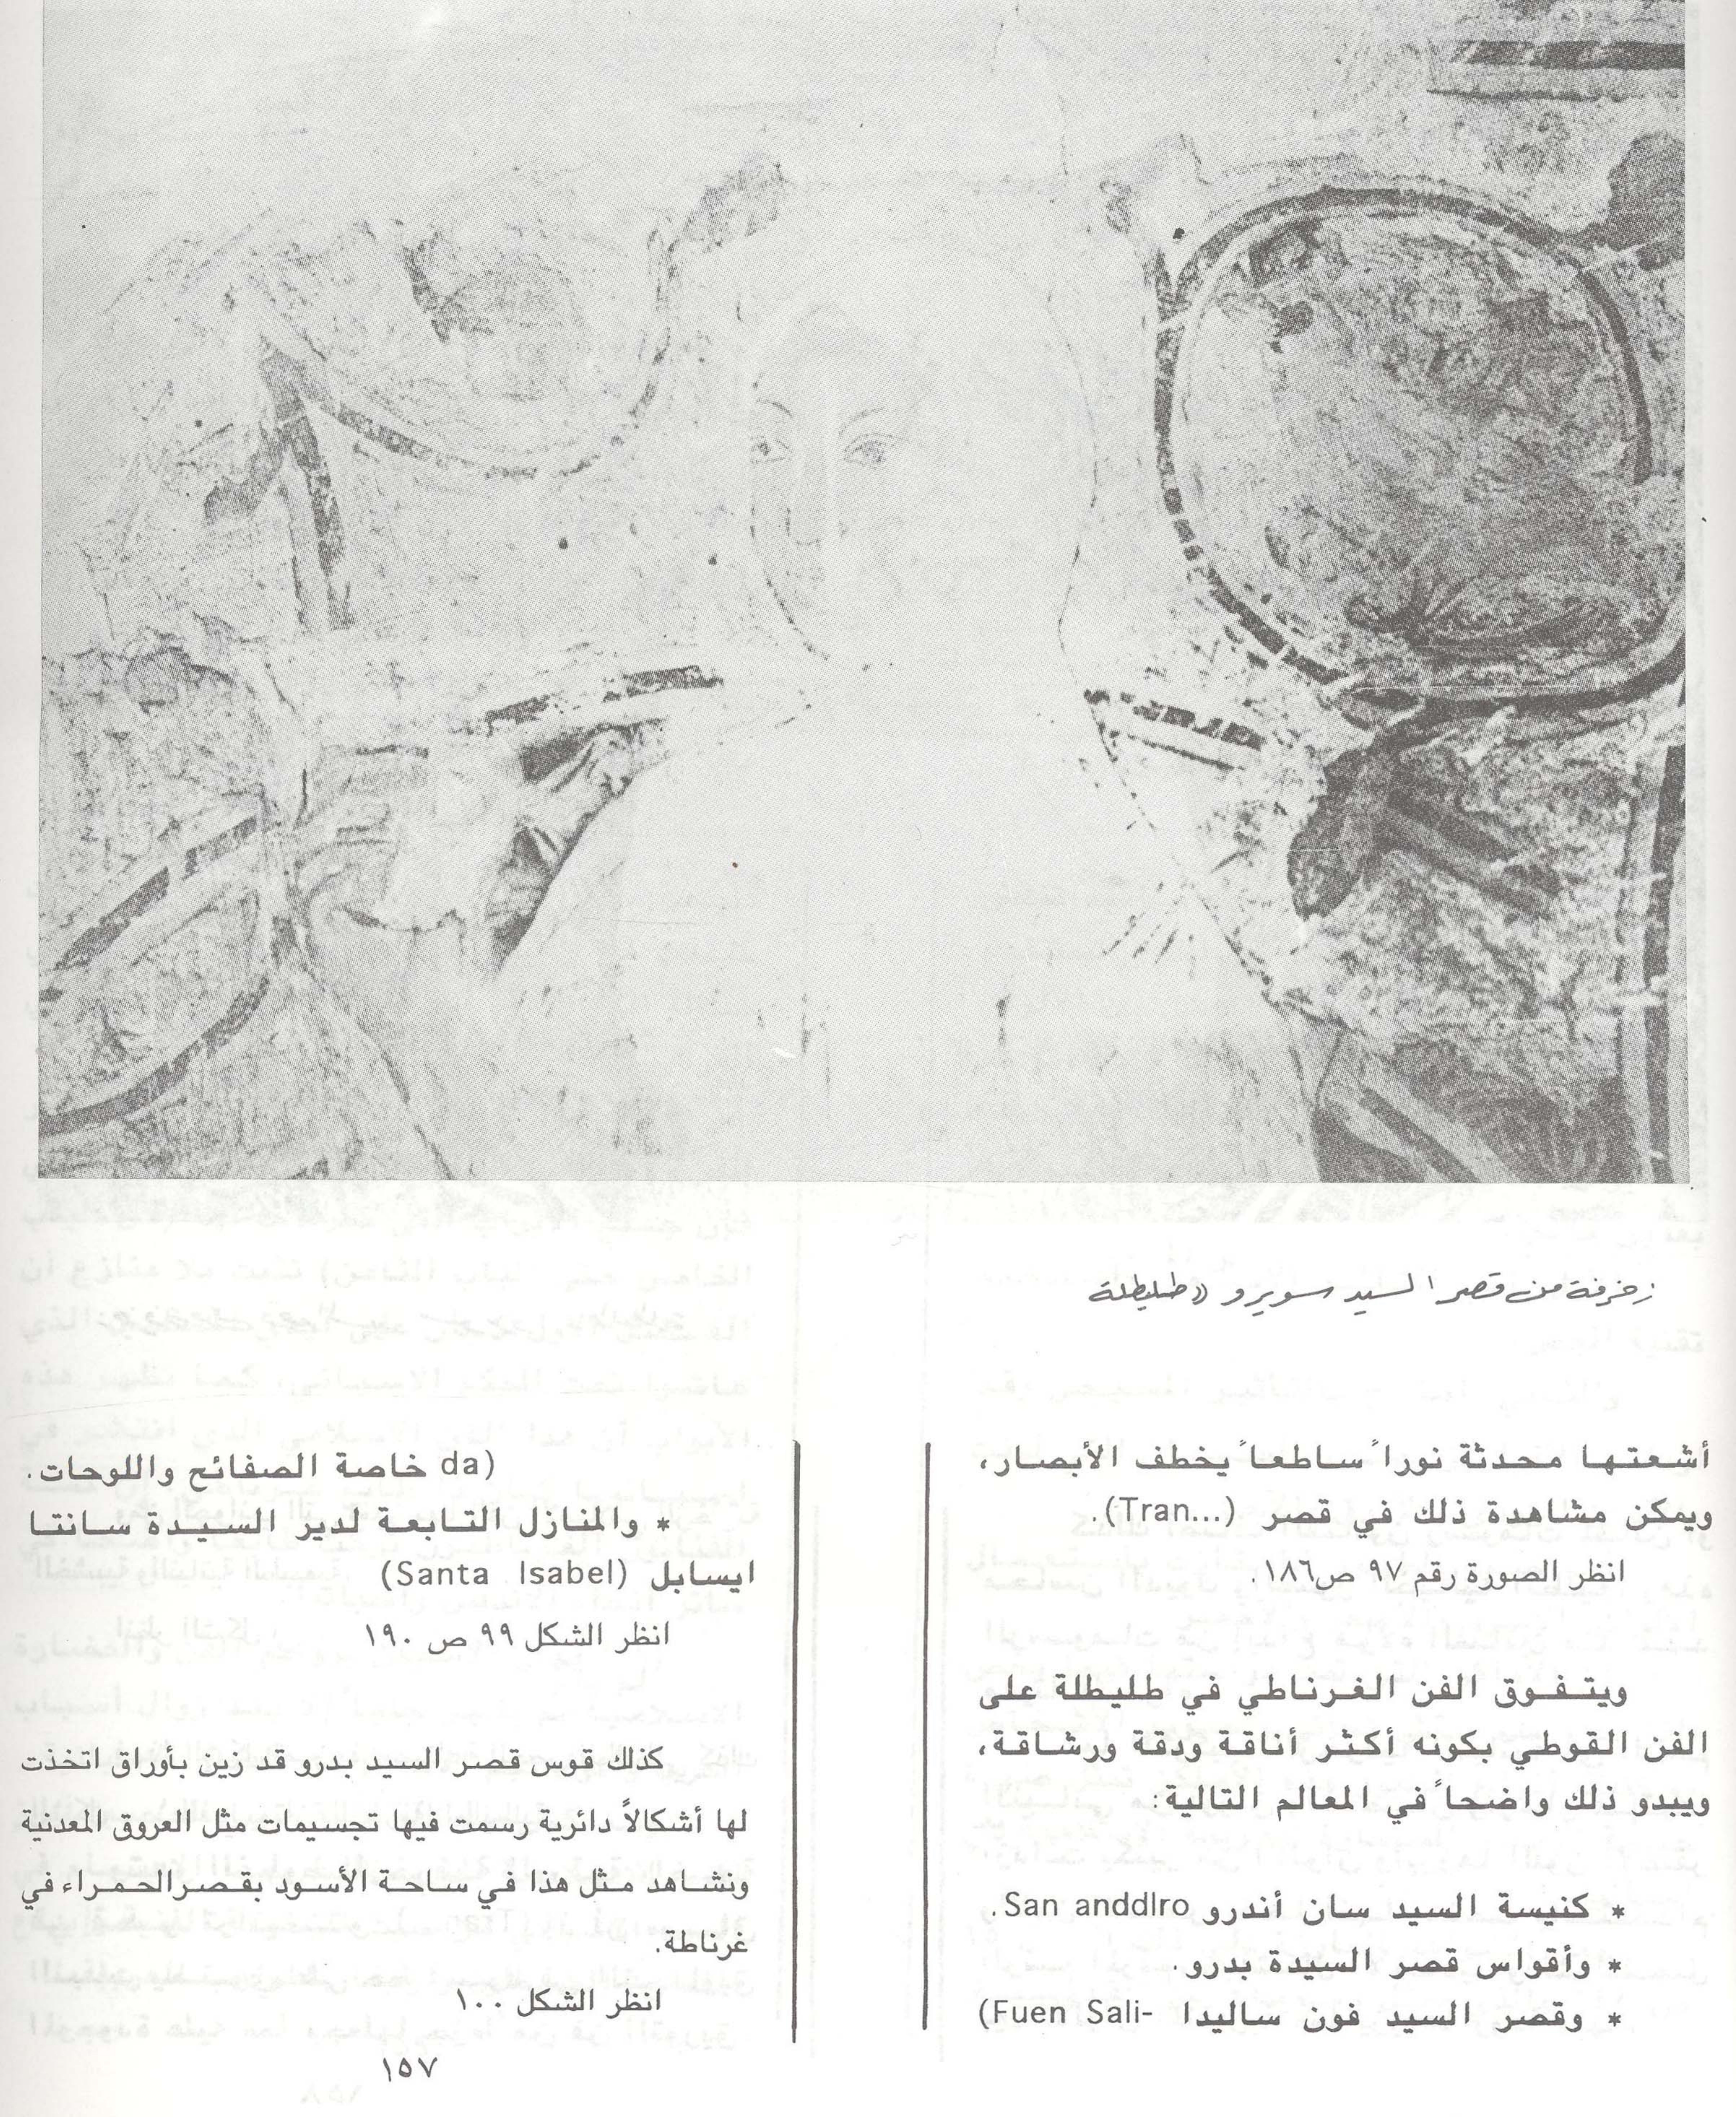 زخرفة من قصر السيد سويرو «طليطلة
أشعتها محدثة نوراً ساطعاً يخطف الأبصار،
ويمكن مشاهدة ذلك في قصر (Tran...).
انظر الصورة رقم ٩٧ ص١٨٦.
ويتفوق الفن الغرناطي في طليطلة على
الفن القوطي بكونه أكثر أناقة ودقة ورشاقة،
ويبدو ذلك واضحاً في المعالم التالية:
* كنيسة السيد سان أندرو San anddlro.
* وأقواس قصر السيدة بدرو.
* وقصر السيد فون ساليدا (Fuen Sali-
da) خاصة الصفائح واللوحات.
* والمنازل التابعة لدير السيدة سانتا
ايسابل (Santa Isabel)
انظر الشكل ٩٩ ص ١٩٠
كذلك قوس قصر السيد بدرو قد زين بأوراق اتخذت
لها أشكالاً دائرية رسمت فيها تجسيمات مثل العروق المعدنية
ونشاهد مثل هذا في ساحة الأسود بقصر الحمراء في
غرناطة.
انظر الشكل ١٠٠
١٥٧